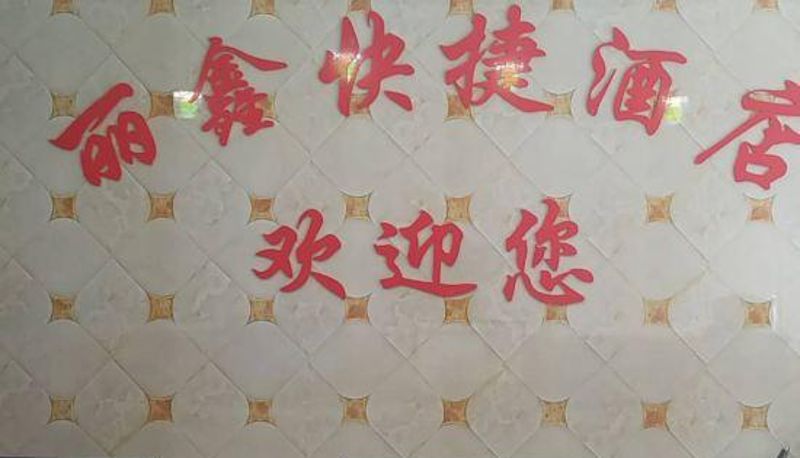 丽鑫快捷酒店
欢迎您